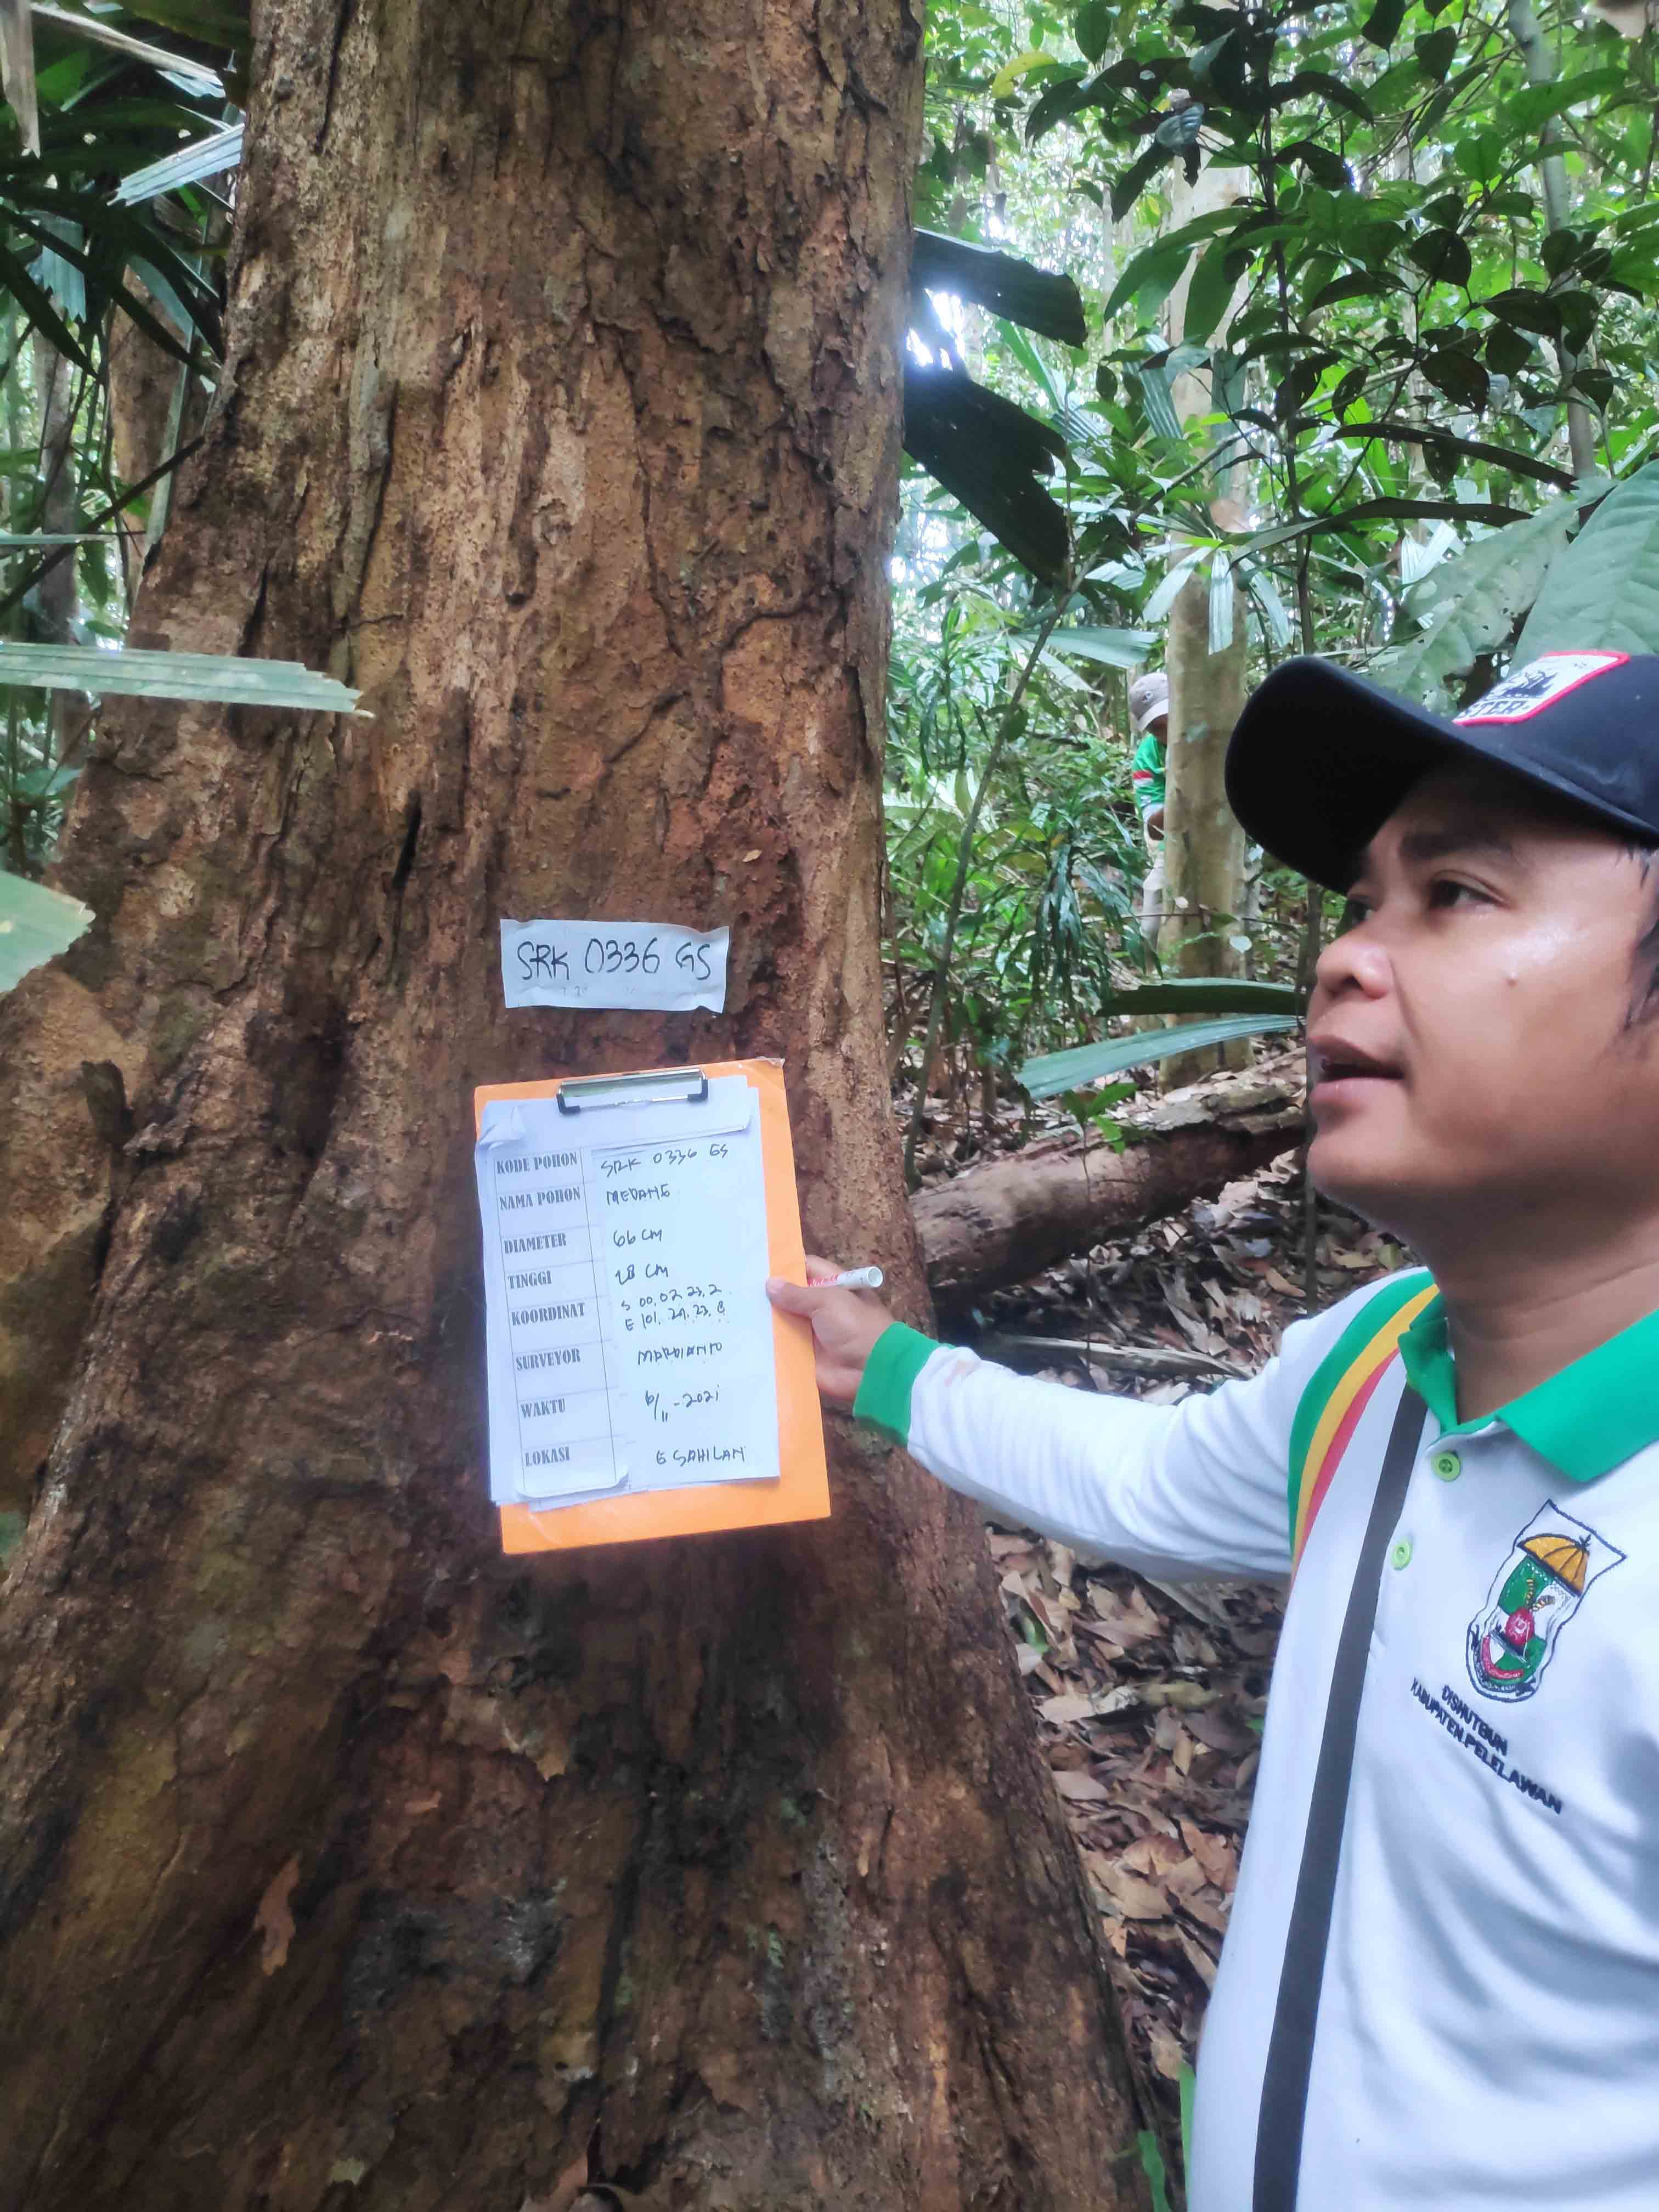 SRK 0336 GS
KODE POHON SRK 0336 GS
NAMA POHON MEDANG
DIAMETER 66 CM
TINGGI 28 CM
KOORDINAT S 00. 02. 23, 2
E 101. 29. 23, 8
SURVEYOR MARDIANTO
WAKTU 6/11 - 2021
LOKASI G SAHILAN
DISHUTBUN
KABUPATEN PELELAWAN